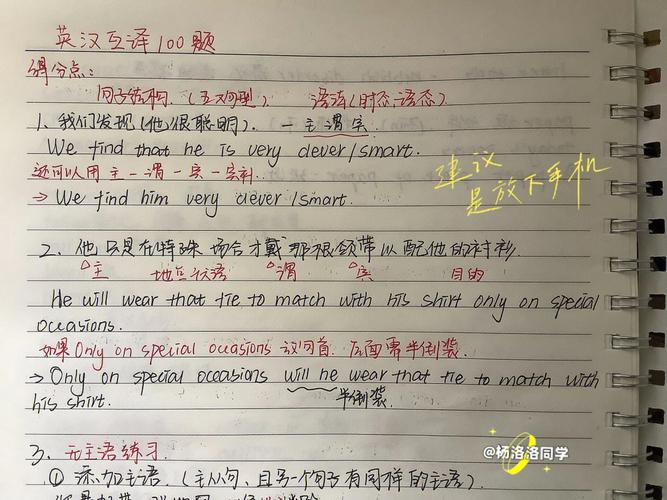 英汉互译100题
得分点:
句子结构.(五大句型). 语法(时态,语态)
1、我们发现(他很聪明). — 主谓宾
We find that he is very clever/smart.
还可以用 主—谓—宾—宾补.
→ We find him very clever/smart.
建议
是放下手机
2、他只是在特殊场合才戴那根领带以配他的衬衫
△主 地点状语 △谓 △宾 目的
He will wear that tie to match with his shirt only on special
occasions.
如果Only on special occasions 放句首, 后面要半倒装.
→ Only on special occasions will he wear that tie to match with
his shirt. 半倒装.
3、无主语练习.
① 添加主语.(主从句,且另一个句子有同样的主语)
@杨洛洛同学